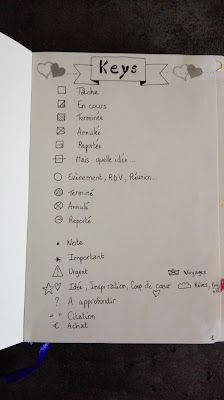 Keys
Tâche
En cours
Terminée
Annulée
Reportée
Mais quelle idée...
Evènement, RDV, Réunion...
Terminé
Annulé
Reporté
Note
Important
! Urgent
Voyages
Idée, Inspiration, Coup de cœur
Rêves,
? A approfondir
" " Citation
€ Achat
1